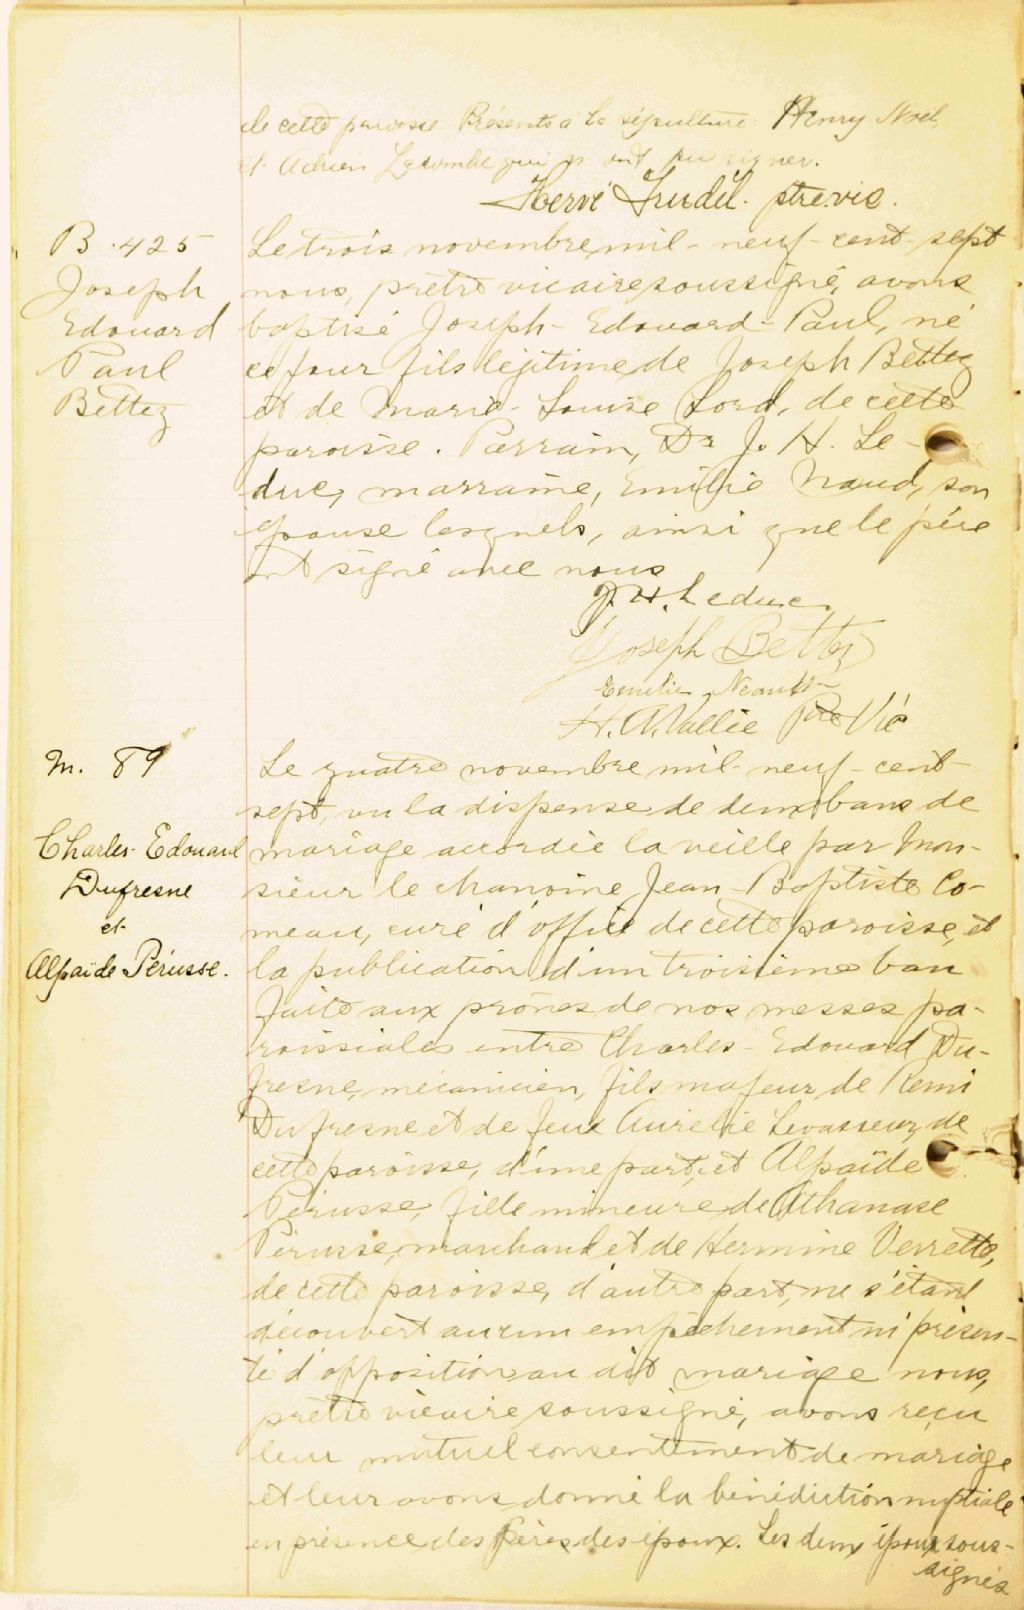 de cette paroisse Présents à la sépulture Henry Noël,
et Adrien Lacombe qui n'ont pu signer.
Hervé Trudel. ptre.vic.
B. 425
Joseph
Edouard
Paul
Bettez
Le trois novembre mil-neuf-cent-sept
nous, prêtre vicaire soussigné, avons
baptisé Joseph-Edouard-Paul, né
ce jour fils légitime de Joseph Bettez
et de Marie-Louise Lord, de cette
paroisse. Parrain, Dr J. H. Le-
duc, marraine, Emilie Naud, son
épouse lesquels, ainsi que le père
ont signé avec nous
J. H. Leduc
Joseph Bettez
Emilie
H. A. Vallée Ptre Vic
M. 89
Charles-Edouard
Dufresne
et
Alpaïde Pérusse.
Le quatre novembre mil-neuf-cent-
sept, vu la dispense de deux bans de
mariage accordée la veille par Mon-
sieur le chanoine Jean-Baptiste Co-
meau, curé d'office de cette paroisse, et
la publication d'un troisième ban
faite aux prônes de nos messes pa-
roissiales entre Charles-Edouard Du-
fresne, mécanicien, fils majeur de Remi
Dufresne et de feue Aurélie Levasseur, de
cette paroisse, d'une part, et Alpaïde
Pérusse, fille mineure de Athanase
Pérusse, marchand et de Hermine Verrette,
de cette paroisse, d'autre part, ne s'étant
découvert aucun empêchement ni présen-
té d'opposition au dit mariage nous,
prêtre vicaire soussigné, avons reçu
leur mutuel consentement de mariage
et leur avons donné la bénédiction nuptiale
en présence des pères des époux. Les deux époux sous-
signés